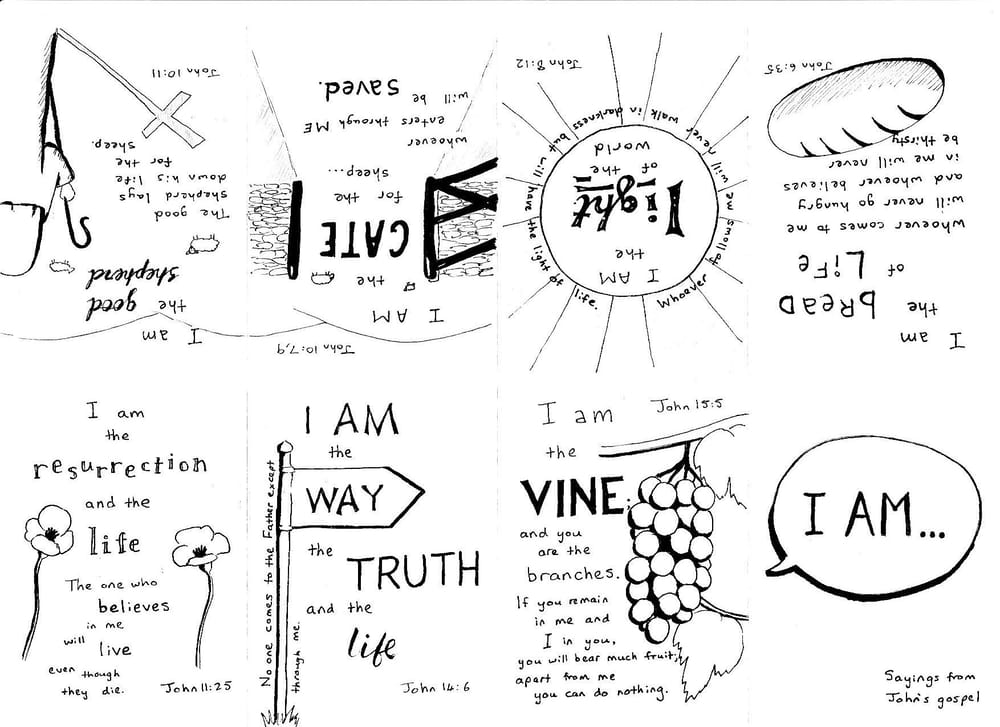 I am
the good
shepherd
The good
shepherd lays
down his life
for the
sheep.
John 10:11
John 10:7,9
I AM
the
GATE
for the
sheep...
whoever
enters through ME
will be saved.
I AM
the
light
of the
world
Whoever follows me will never walk in darkness but will have the light of life.
John 8:12
I am
the bREAD
of LiFe
whoever comes to me
will never go hungry
and whoever believes
in me will never
be thirsty
John 6:35
I am
the
resurrection
and the
life
The one who
believes
in me
will live
even though
they die.
John 11:25
I AM
the
WAY
the
TRUTH
and the
life
No one comes to the Father except
through me.
John 14:6
I am
John 15:5
the
VINE;
and you
are the
branches.
If you remain
in me and
I in you,
you will bear much fruit;
apart from me
you can do nothing.
I AM...
Sayings from
John's gospel